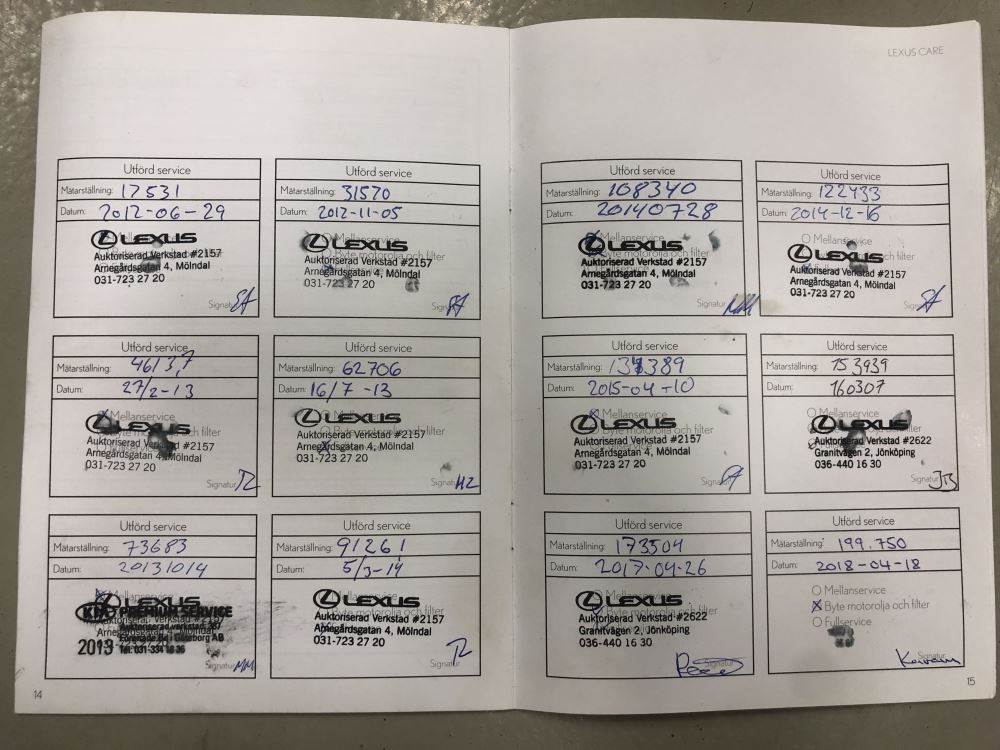 LEXUS CARE
Utförd service
Mätarställning: 17531
Datum: 2012-06-29
LEXUS
Auktoriserad Verkstad #2157
Arnegårdsgatan 4, Mölndal
031-723 27 20
Signatur
Utförd service
Mätarställning: 31570
Datum: 2012-11-05
LEXUS
Auktoriserad Verkstad #2157
Arnegårdsgatan 4, Mölndal
031-723 27 20
Signatur
Utförd service
Mätarställning: 46137
Datum: 27/2-13
Mellanservice
LEXUS
Byte motorolja och filter
Auktoriserad Verkstad #2157
Arnegårdsgatan 4, Mölndal
031-723 27 20
Signatur TZ
Utförd service
Mätarställning: 62706
Datum: 16/7-13
LEXUS
Byte motorolja och filter
Auktoriserad Verkstad #2157
Arnegårdsgatan 4, Mölndal
031-723 27 20
Signatur HZ
Utförd service
Mätarställning: 73683
Datum: 20131014
Mellanservice
LEXUS
KIA PREMIUM SERVICE
2013 Tel: 031-334 16 36
Signatur MM
Utförd service
Mätarställning: 91261
Datum: 5/3-14
LEXUS
Byte motorolja och filter
Auktoriserad Verkstad #2157
Arnegårdsgatan 4, Mölndal
031-723 27 20
Signatur TZ
14
Utförd service
Mätarställning: 108340
Datum: 20140728
Mellanservice
LEXUS
Byte motorolja och filter
Auktoriserad Verkstad #2157
Arnegårdsgatan 4, Mölndal
031-723 27 20
Signatur MM
Utförd service
Mätarställning: 122433
Datum: 2014-12-16
Mellanservice
LEXUS
Auktoriserad Verkstad #2157
Arnegårdsgatan 4, Mölndal
031-723 27 20
Signatur
Utförd service
Mätarställning:
Datum: 2015-04-10
Mellanservice
LEXUS
Byte motorolja och filter
Auktoriserad Verkstad #2157
Arnegårdsgatan 4, Mölndal
031-723 27 20
Signatur
Utförd service
Mätarställning: 153939
Datum: 160307
Mellanservice
LEXUS
Auktoriserad Verkstad #2622
Granitvägen 2, Jönköping
036-440 16 30
Signatur JB
Utförd service
Mätarställning: 173504
Datum: 2017-04-26
LEXUS
Byte motorolja och filter
Auktoriserad Verkstad #2622
Granitvägen 2, Jönköping
036-440 16 30
Signatur
Utförd service
Mätarställning: 199.750
Datum: 2018-04-18
Mellanservice
Byte motorolja och filter
Fullservice
15